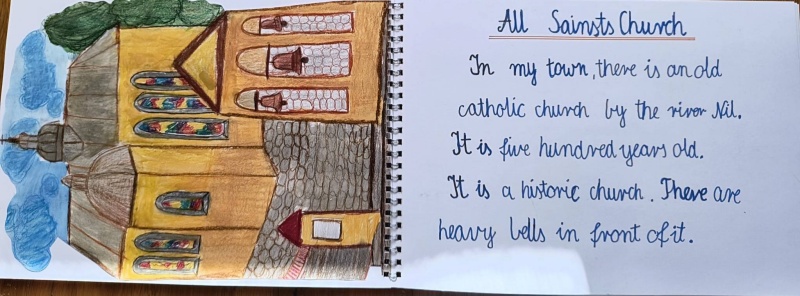 All Sainsts Church
In my town, there is an old
catholic church by the river Nil.
It is five hundred years old.
It is a historic church. There are
heavy bells in front of it.